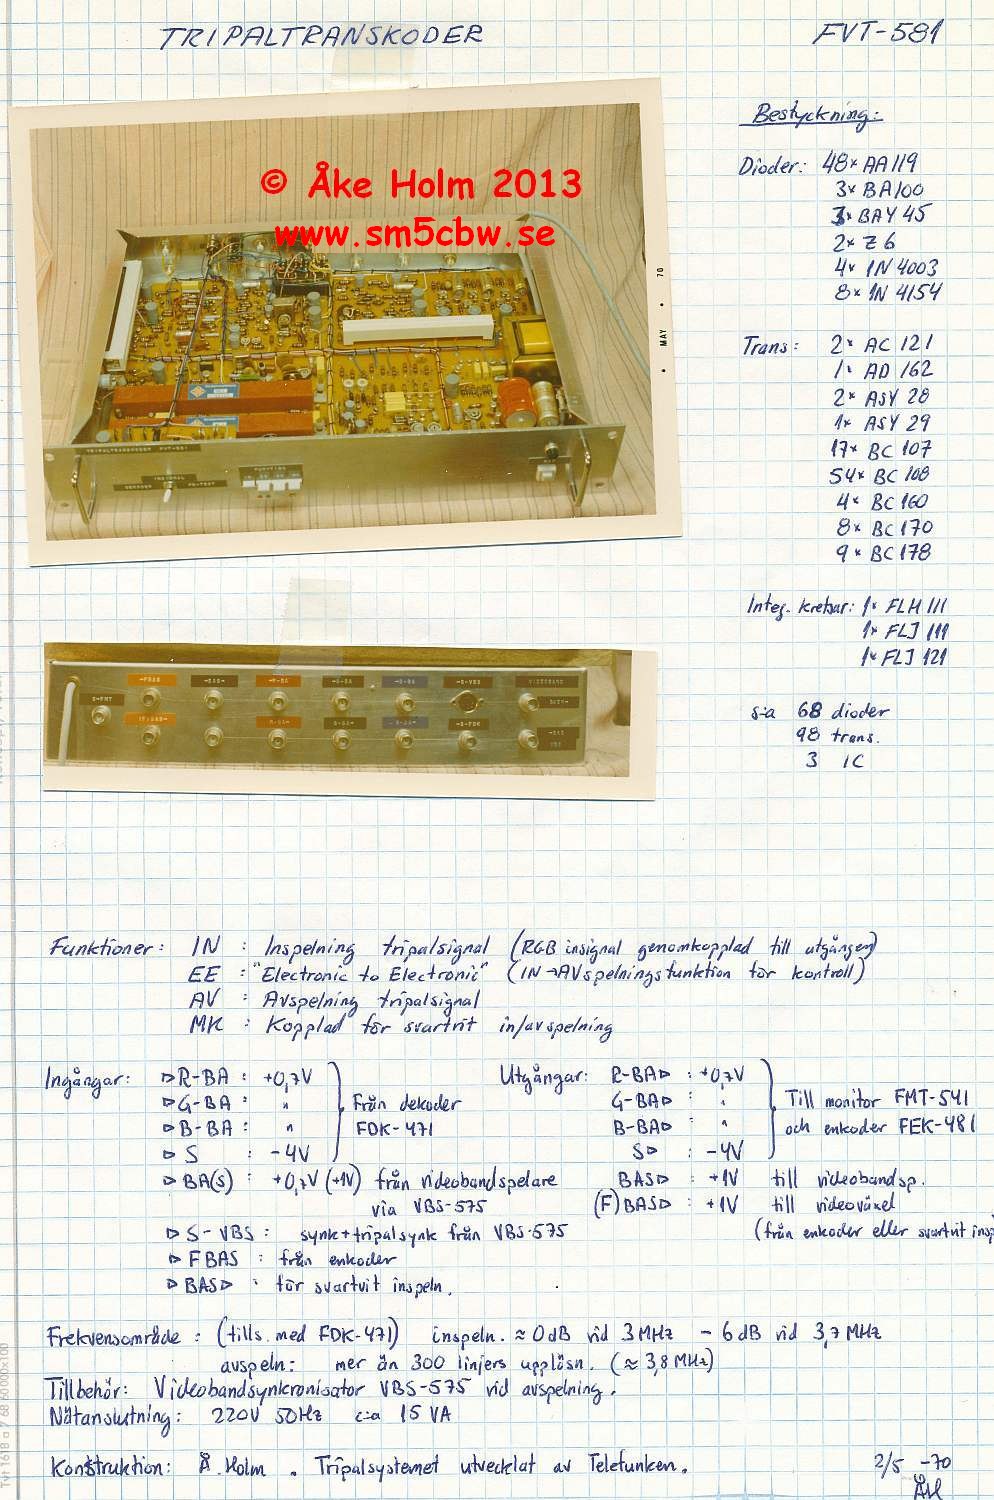 TRIPALTRANSKODER
FVT-581
© Åke Holm 2013
www.sm5cbw.se
MAY • 70
TRIPALTRANSKODER FVT-581
Bestyckning:
Dioder: 48× AA119
3× BA100
3× BAY 45
2× Z6
4× 1N4003
8× 1N4154
Trans: 2× AC 121
1× AD 162
2× ASY 28
1× ASY 29
17× BC 107
54× BC 108
4× BC 160
8× BC 170
9× BC 178
Integ. kretsar: 1× FLH 111
1× FLJ 111
1× FLJ 121
s:a 68 dioder
98 trans.
3 IC
Funktioner: IN : Inspelning tripalsignal (RGB insignal genomkopplad till utgången)
EE : "Electronic to Electronic" (IN→AVspelningsfunktion för kontroll)
AV : Avspelning tripalsignal
MK : Kopplad för svartvit in/avspelning
Ingångar: ▷R-BA : +0,7V
▷G-BA : "
▷B-BA : "
▷S : -4V
Från dekoder
FDK-471
▷BA(S) : +0,7V (+1V) från videobandspelare
via VBS-575
▷S-VBS : synk+tripalsynk från VBS-575
▷FBAS : från enkoder
▷BAS▷ : för svartvit inspeln.
Utgångar: R-BA▷ : +0,7V
G-BA▷ : "
B-BA▷ : "
S▷ : -4V
Till monitor FMT-541
och enkoder FEK-481
BAS▷ : +1V till videobandsp.
(F)BAS▷ : +1V till videoväxel
(från enkoder eller svartvit insp
Frekvensområde : (tills. med FDK-471) inspeln. ≈ 0dB vid 3MHz -6dB vid 3,7MHz
avspeln: mer än 300 linjers upplösn. (≈ 3,8MHz)
Tillbehör: Videobandsynkronisator VBS-575 vid avspelning.
Nätanslutning: 220V 50Hz c:a 15 VA
Konstruktion: Å. Holm. Tripalsystemet utvecklat av Telefunken.
2/5 -70
ÅH